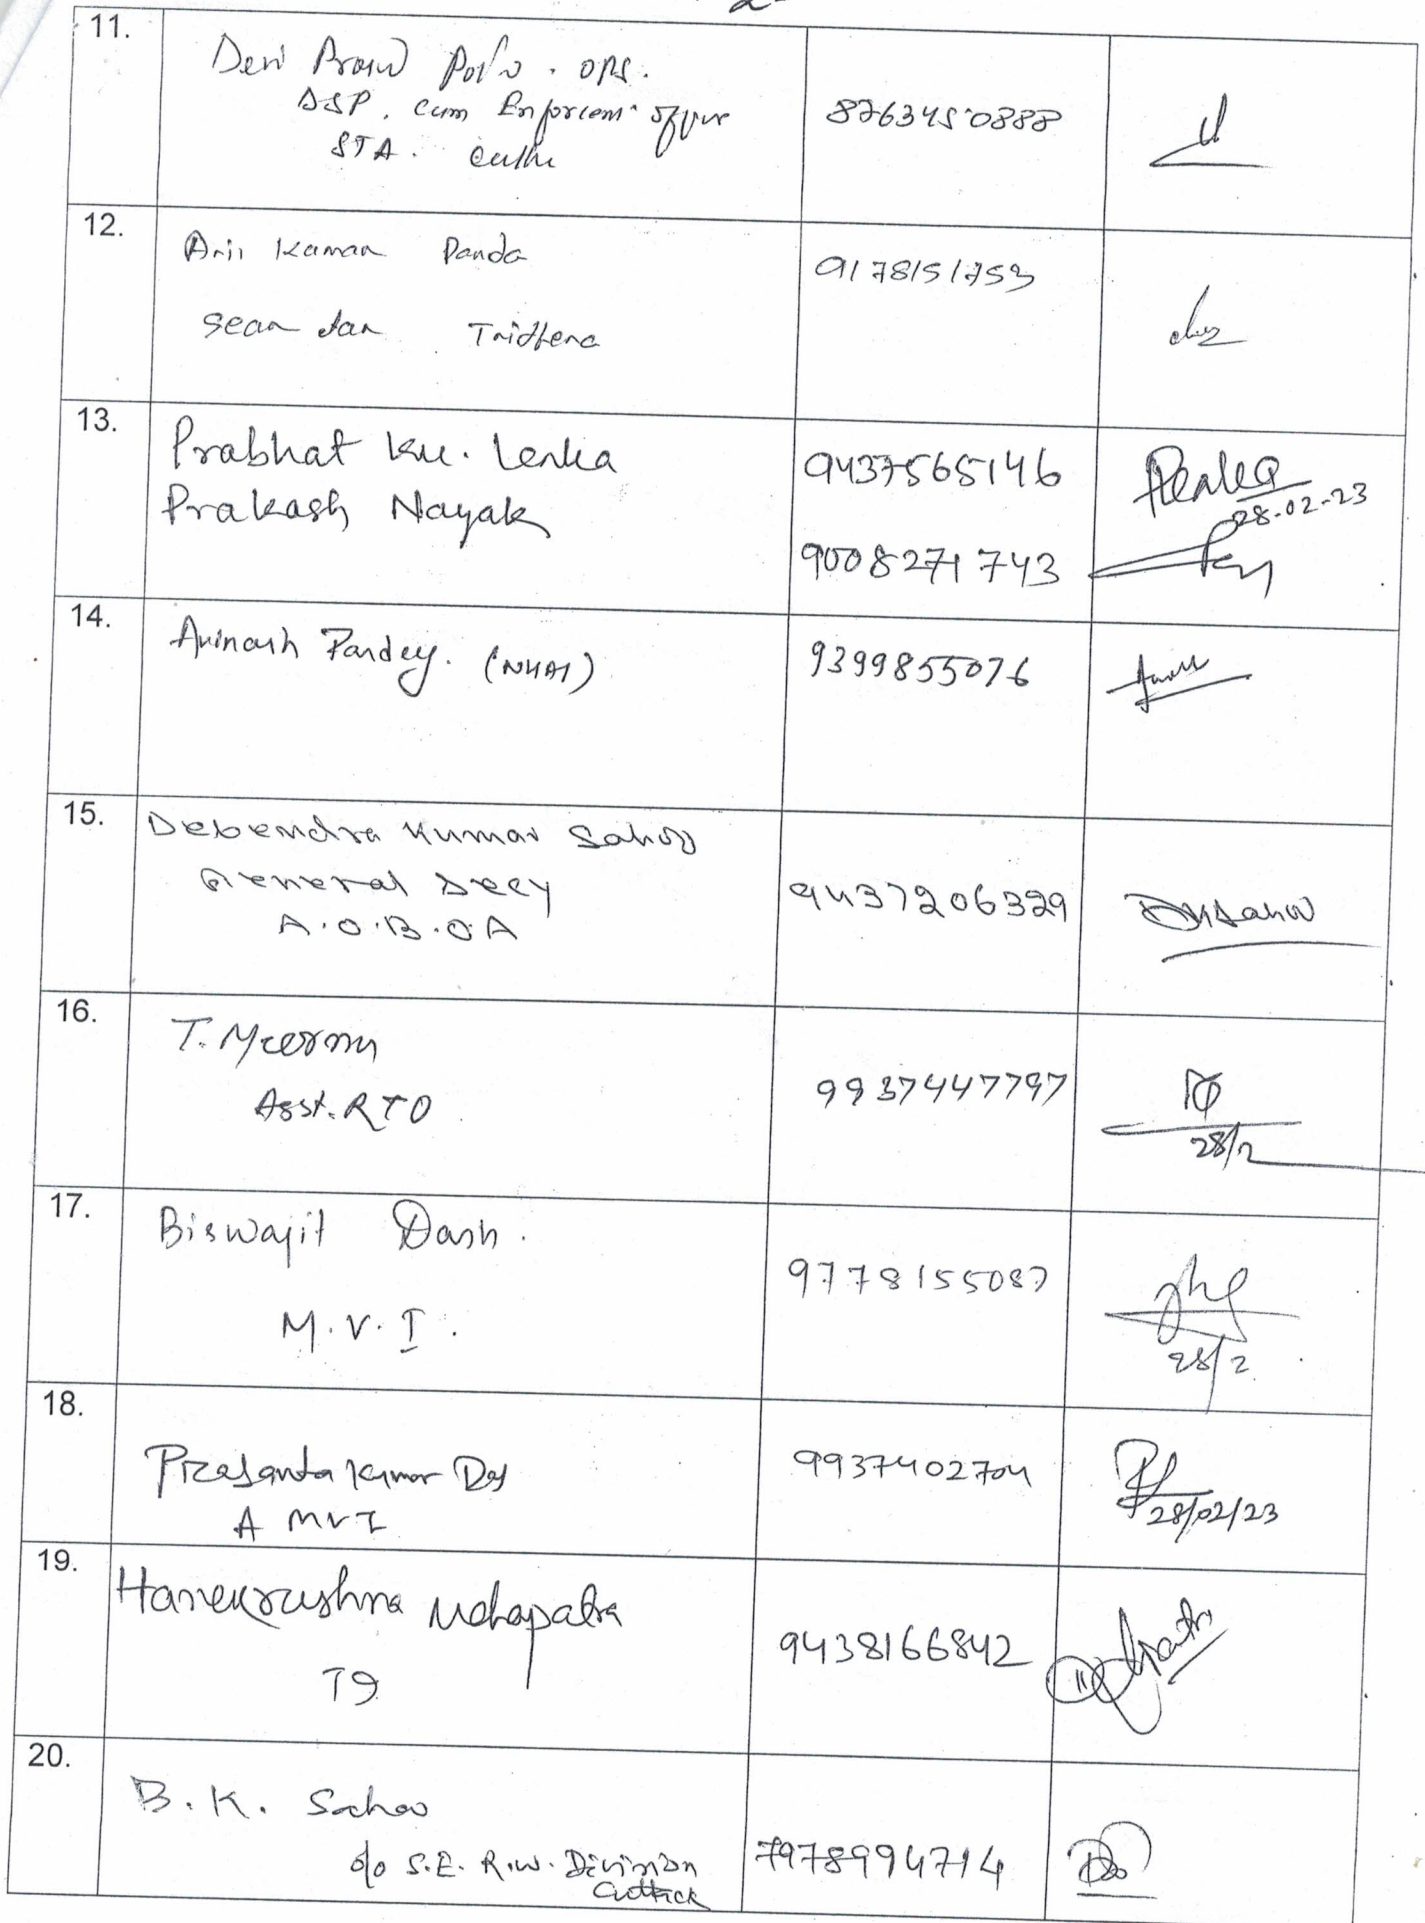 2
11.
Devi Prasad ops.
DSP. cum Enforcem
STA.
8763450888
12.
Kumar Panda
9178151753
13.
Prabhat Ku. Lenka
Prakash Nayak
9437565146
9008271743
28-02-23
14.
Avinash Pandey. (NHAI)
9399855076
15.
Debendra Kumar Sahoo
General Secy
A.O.B.O.A
9437206329
DKSahoo
16.
T.
Asst. RTO
9937447797
28/2
17.
Biswajit Dash.
M.V.I.
9778155087
28/2
18.
Prasanta Kumar Das
A MVI
9937402704
28/02/23
19.
Harekrushna Mohapatra
9438166842
20.
B.K. Sahoo
o/o S.E. R.W. Division
Cuttack
7978994714